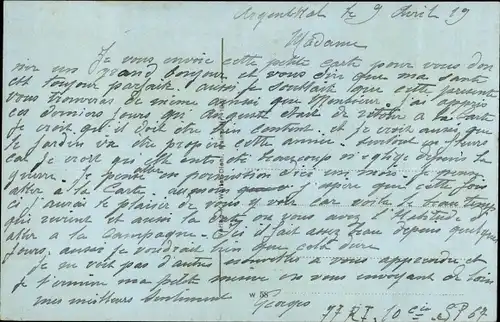 le 9 Avril 19
Madame
Je vous envoie cette petite carte pour vous don
ner un grand bonjour et vous dire que ma santé
est toujour parfait. aussi je souhait que cette presente
vous trouveras de même ainsi que Monsieur. j'ai appris
ces derniers jours que était de retour a la Carte
je croit qu'il doit être bien content. et je croit aussi que
le jardin va être propre cette année. surtout en fleurs
car je croit qu'il est et beaucoup négligé depuis la
guerre. Je pense en permission d'ici un mois je pense
aller a la Carte. j'espère que cette fois
ci j'aurai le plaisir de vous y voir car voila le beau temps
qui revient et aussi la date ou vous avez l'habitude d'
aller a la Campagne. Ici il fait assez beau depuis quelques
jours, aussi je voudrait bien que cela dure
Je ne voit pas d'autres nouvelles a vous apprendre et
je termine ma petite en vous envoyant de loin
mes meilleurs sentiment Georges
W 58
77 R.I. 10 cie SP 67